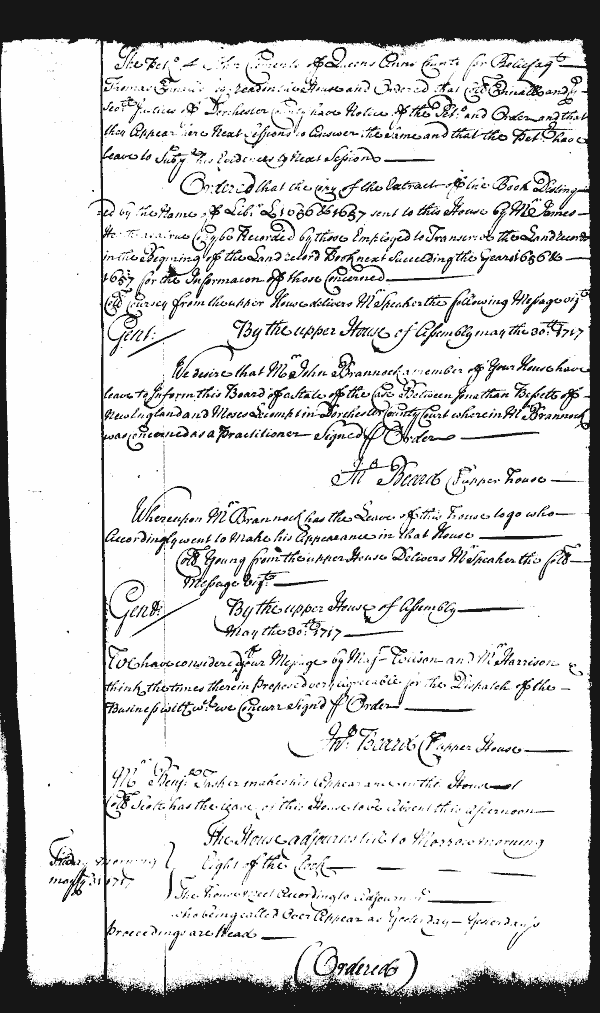 The Petn of John Clements of Queen Anns County for Relief agt
Thomas Ennalls being read in the House and Ordered that Coll Ennalls and ye
Justices of Dorchester County have Notice of the Petn and Order and that
they Appear here Next Sessions to Answer the same and that the Petr have
leave to his Evidences to Next Sessions
Ordered that the copy of the Extract of the Book Disting
ed by the Name of Libr L 1656 & 1657 sent to this House by Mr James
be Recorded by those Employed to Transcribe the Land records
in the Begining of the Land record Book next Succeeding the Years 1656 &
1657 for the Informacon of those Concerned
Coll Coursey from the upper House delivers Mr Speaker the following Message vizt
Gent: By the upper House of Assembly may the 30th 1717
We desire that Mr John Brannock a member of Your House have
leave to Inform this Board of a state of the Case Between Jonathan of
New England and Moses in Dorchester County Court wherein Mr Brannock
was concerned as a Practitioner Signed p Order
Beard Cl upper house
Whereupon Mr Brannock has the Leave of this House to go who
Accordingly went to make his Appearance in that House
Coll Young from the upper House Delivers Mr Speaker the foll
Message vizt
Gent: By the upper House of Assembly
May the 30th 1717
We have considered your Message by Majr Wilson and Mr Harrison &
think the times therein Proposed very agreeable for the Dispatch of the
Business with wch we Concurr Signd p Order
Beard Cl upper House
Mr Benja Tasker makes his Appearance in the House
Coll Scott has the leave of this House to be Absent this afternoon
The House adjourns till to Morrow morning
Eight of the Clock
Friday morning
may ye 31 1717
The House meet According to Adjournmt
who being called Over Appear as Yesterday Yesterday's
Proceedings are Read
(Ordered)